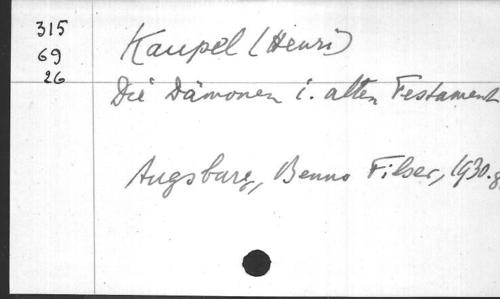 315
69
26
Kaupel (Henri)
Die Dämonen i. alten Testament
Augsburg, Benno Filser, 1930. 8